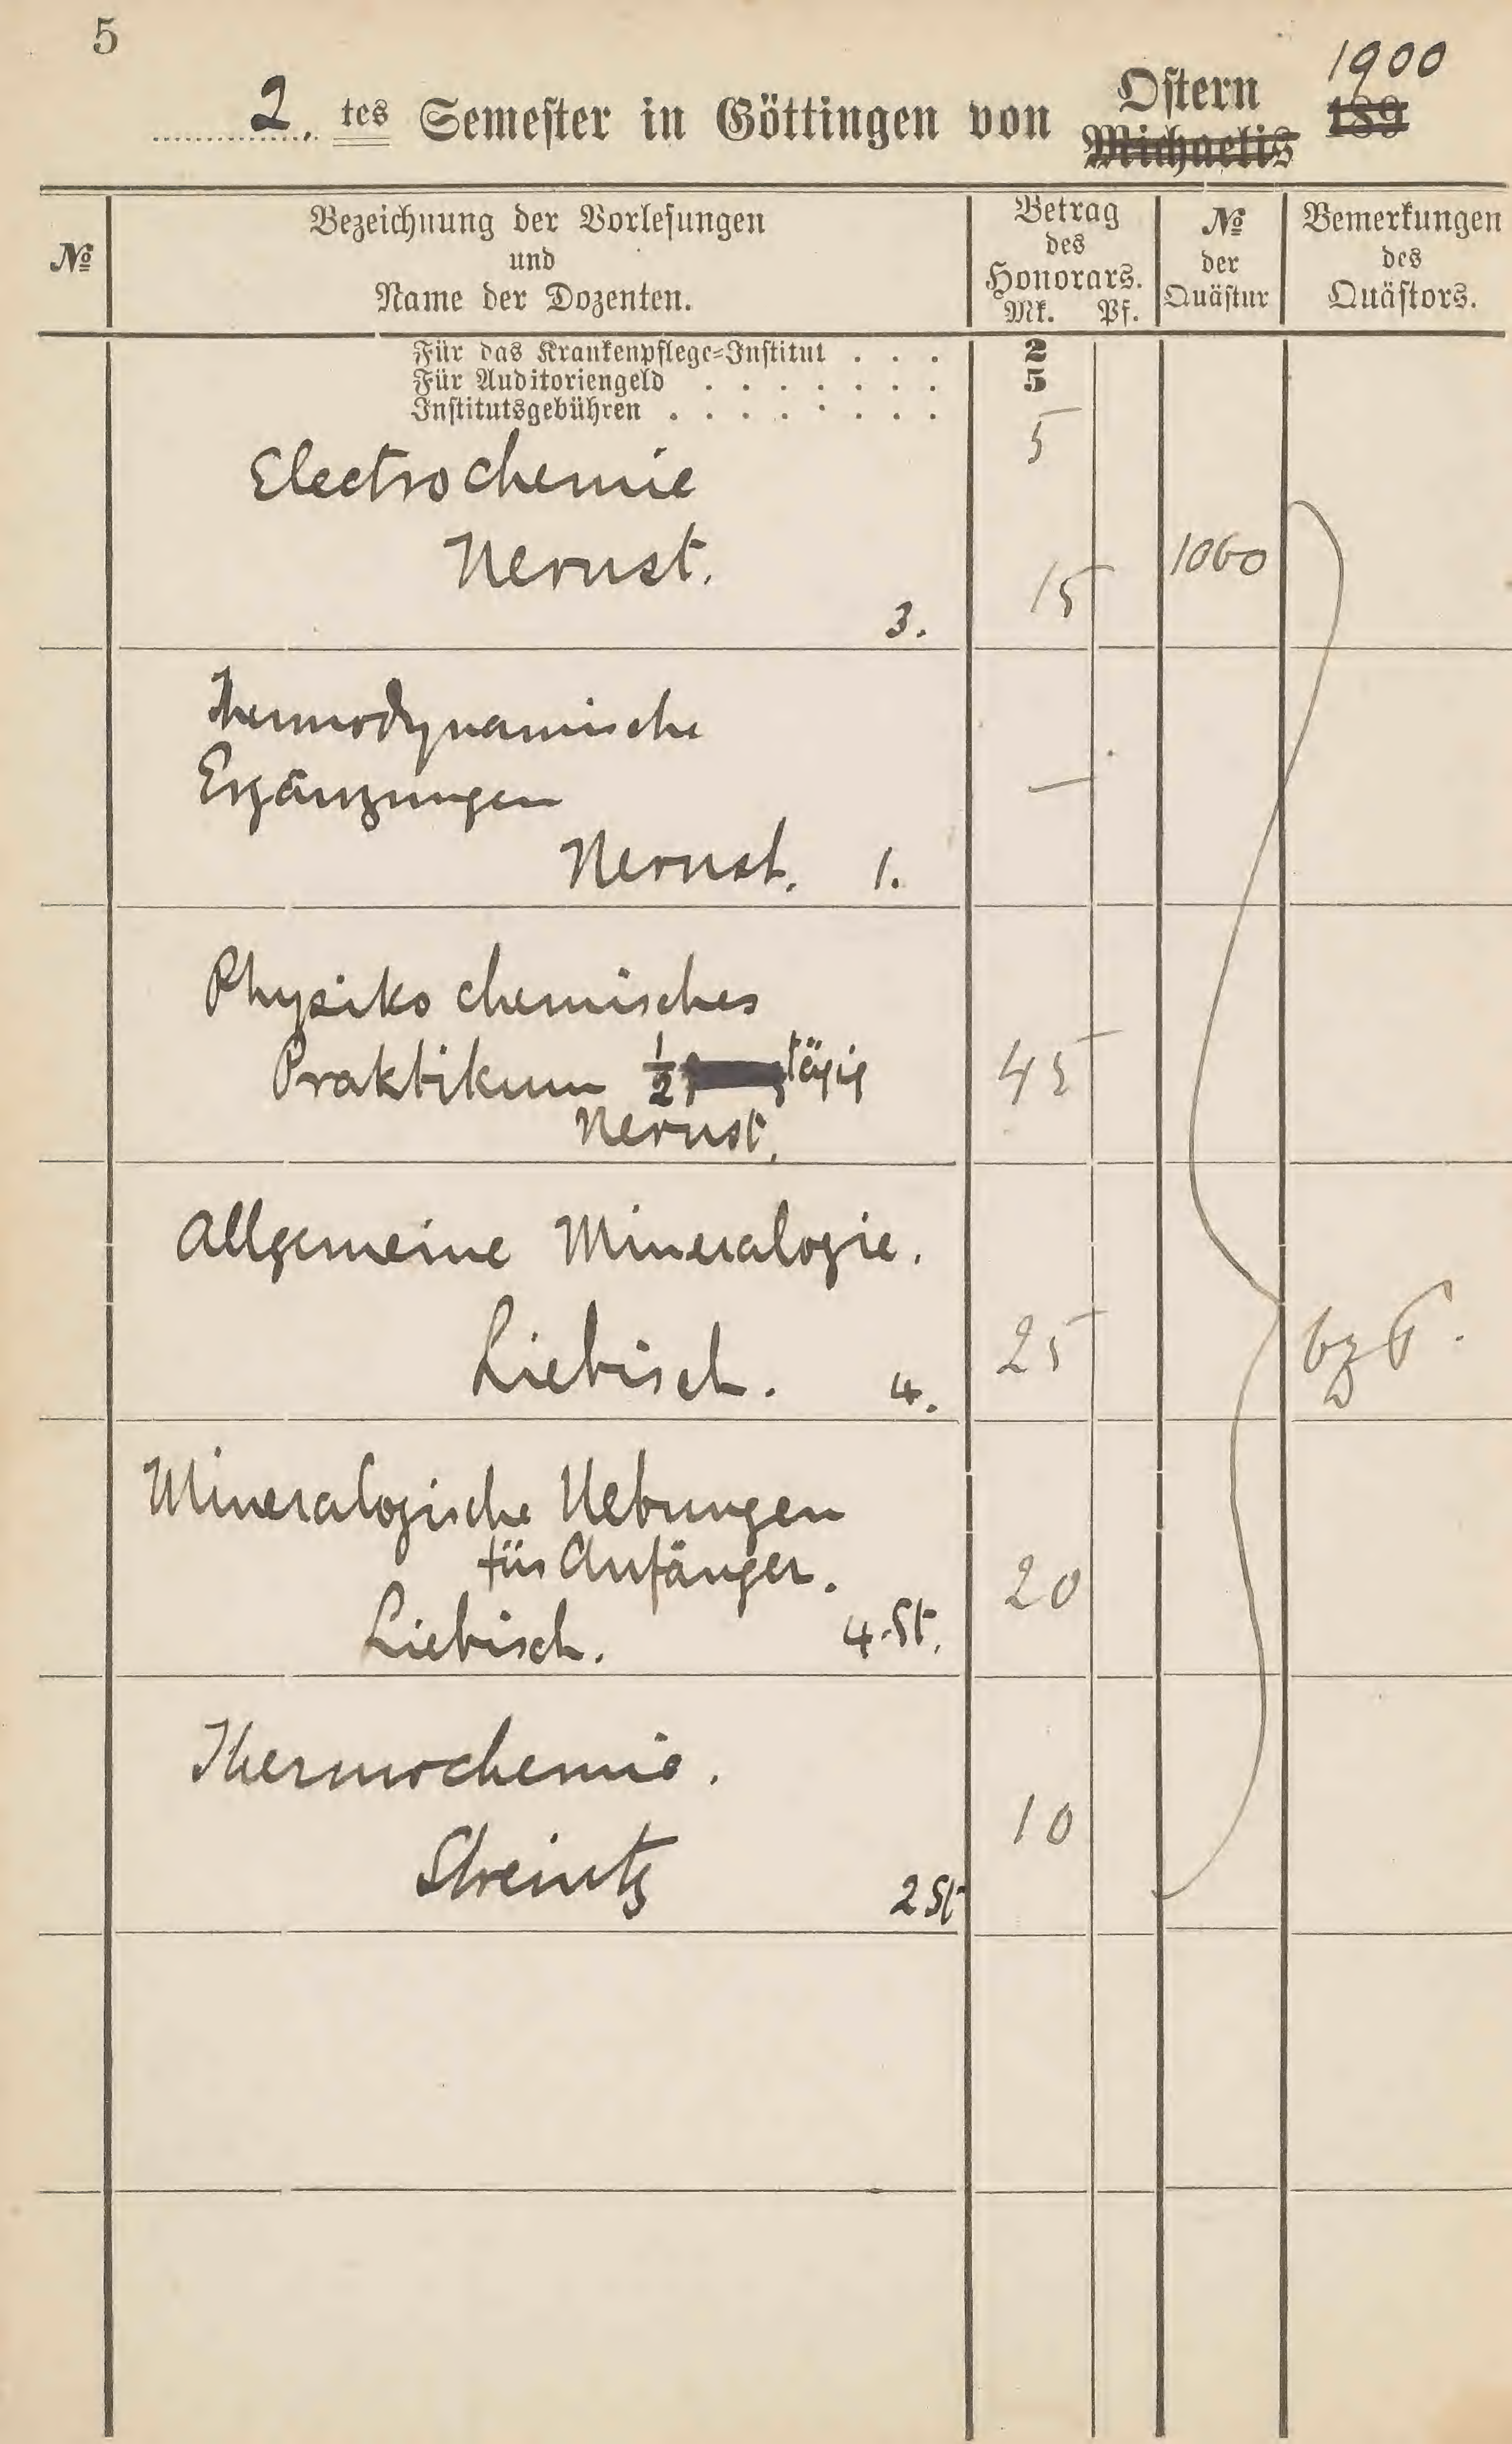 5
2. tes Semester in Göttingen von Ostern 1900
Michaelis 189
№
Bezeichnung der Vorlesungen
und
Name der Dozenten.
Betrag
des
Honorars.
Mk. Pf.
№
der
Quästur
Bemerkungen
des
Quästors.
Für das Krankenpflege=Institut . . . 2
Für Auditoriengeld . . . . . . . 5
Institutsgebühren . . . . . . . . 5
Electrochemie
Nernst. 1060
3. 15
Thermodynamische
Ergänzungen —
Nernst. 1.
Physiko chemisches
Praktikum ½ tägig 45
Nernst.
Allgemeine Mineralogie.
Liebisch. 4. 25
Mineralogische Uebungen
für Anfänger. 20
Liebisch. 4.St.
Thermochemie.
10
Streintz 2 St